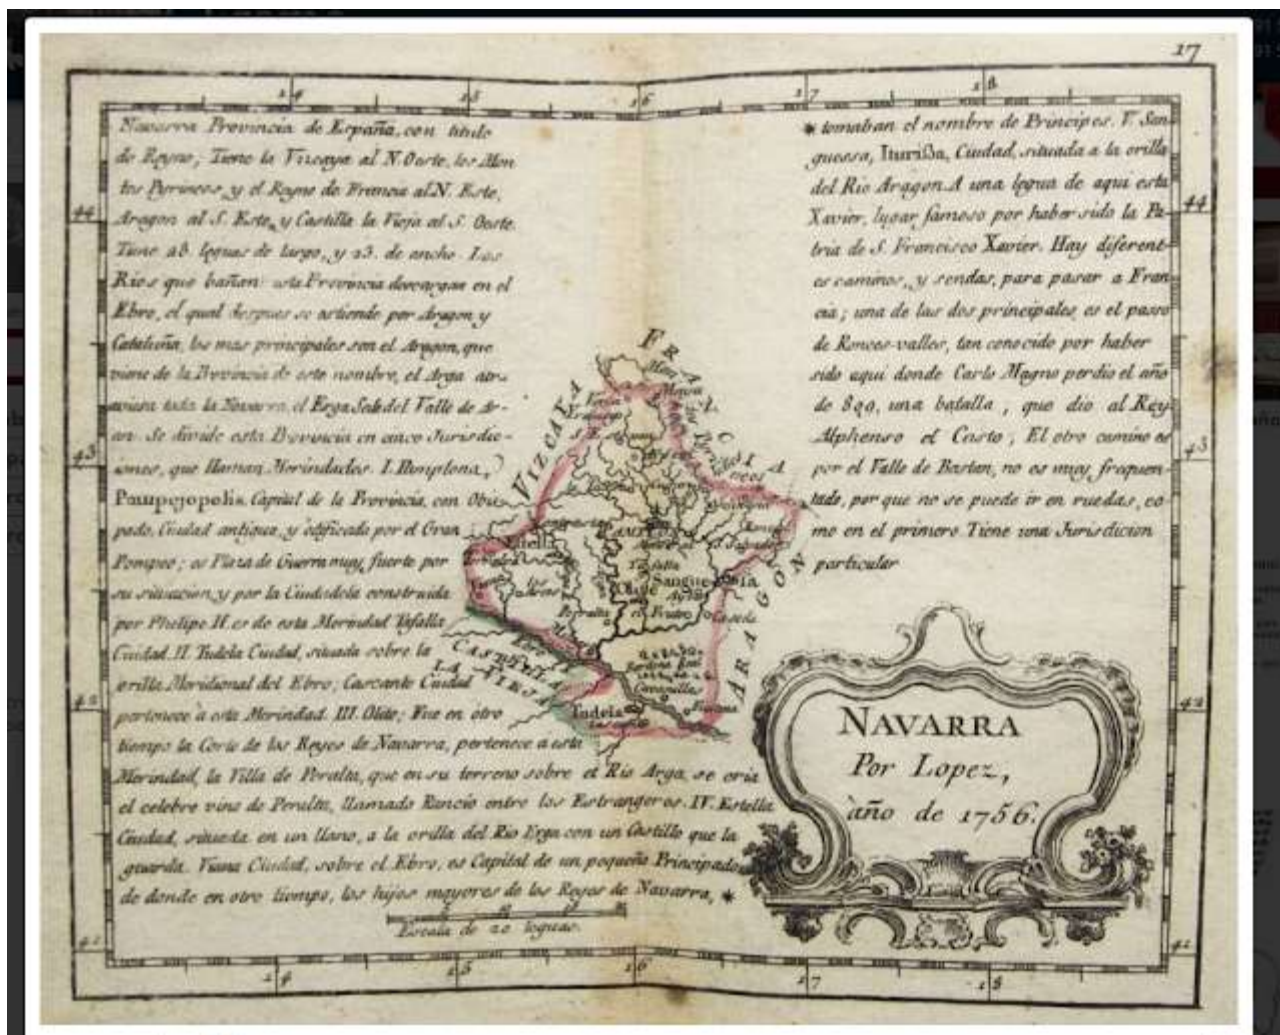 17
14 15 16 17 18
Navarra Provincia de España, con titulo
de Reyno; Tiene la Vizcaya al N. Oeste, los Mon
tes Pyrineos, y el Reyno de Francia al N. Este,
Aragon al S. Este, y Castilla la Vieja al S. Oeste.
Tiene 28. leguas de largo, y 23. de ancho. Los
Rios que bañan esta Provincia descargan en el
Ebro, el qual despues se estiende por Aragon y
Cataluña, los mas principales son el Aragon, que
viene de la Provincia de este nombre, el Arga atra
viesa toda la Navarra, el Erga Sale del Valle de Ar-
an. Se divide esta Provincia en cinco Jurisdic-
iones, que llaman Merindades. I. Pamplona,
Pampejopolis. Capital de la Provincia, con Obis
pado, Ciudad antigua, y edificada por el Gran
Pompeo; es Plaza de Guerra muy fuerte por
su situacion y por la Ciudadela construida
por Phelipe II. es de esta Merindad Tafalla
Ciudad. II. Tudela Ciudad, situada sobre la
orilla Meridional del Ebro; Cascante Ciudad
pertenece à esta Merindad. III. Olite; Fue en otro
tiempo la Corte de los Reyes de Navarra, pertenece a esta
Merindad, la Villa de Peralta, que en su terreno sobre el Rio Arga, se cria
el celebre vino de Peralta, llamado Rancio entre los Estrangeros. IV. Estella
Ciudad, situada en un llano, a la orilla del Rio Erga con un Castillo que la
guarda. Viana Ciudad, sobre el Ebro, es Capital de un pequeño Principado
de donde en otro tiempo, los hijos mayores de los Reyes de Navarra, *
* tomaban el nombre de Principes. V. San
guessa, Iturissa, Ciudad, situada a la orilla
del Rio Aragon. A una legua de aqui esta
Xavier, lugar famoso por haber sido la Pa-
tria de S. Francisco Xavier. Hay diferent-
es caminos, y sendas, para pasar a Fran
cia; una de las dos principales es el passo
de Ronces-valles, tan conocido por haber
sido aqui donde Carlo Magno perdio el año
de 809, una batalla, que dio al Rey
Alphonso el Casto; El otro camino es
por el Valle de Bastan, no es muy frequen-
tado, por que no se puede ir en ruedas, co
mo en el primero Tiene una Jurisdicion
particular
FRANCIA
VIZCAYA
ARAGON
CASTILLA
LA VIEJA
Estella
Tafalla
Olite
Sanguessa
Peralta
Caseda
Tudela
44 44
43 43
42 42
41 41
NAVARRA
Por Lopez,
año de 1756.
Escala de 20 leguas.
14 15 16 17 18